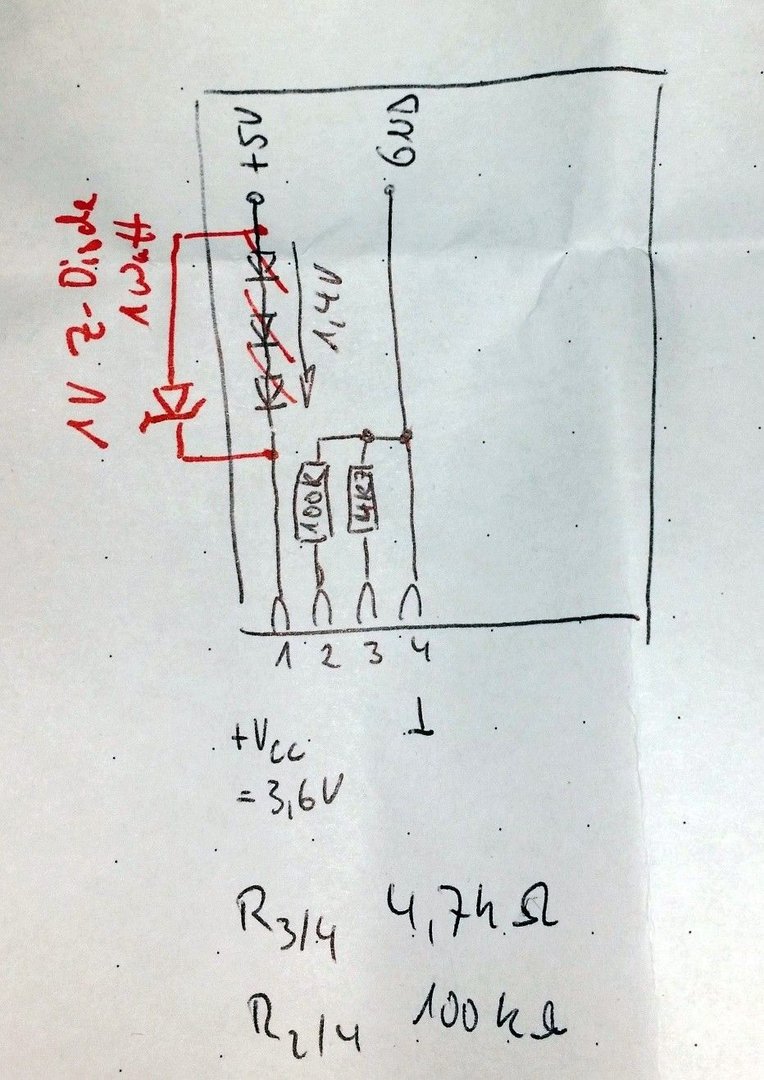 +5V
GND
1V Z-Diode
1 Watt
1,4V
100k
4k7
1 2 3 4
+Vcc
= 3,6V
R3/4 4,7kΩ
R2/4 100kΩ